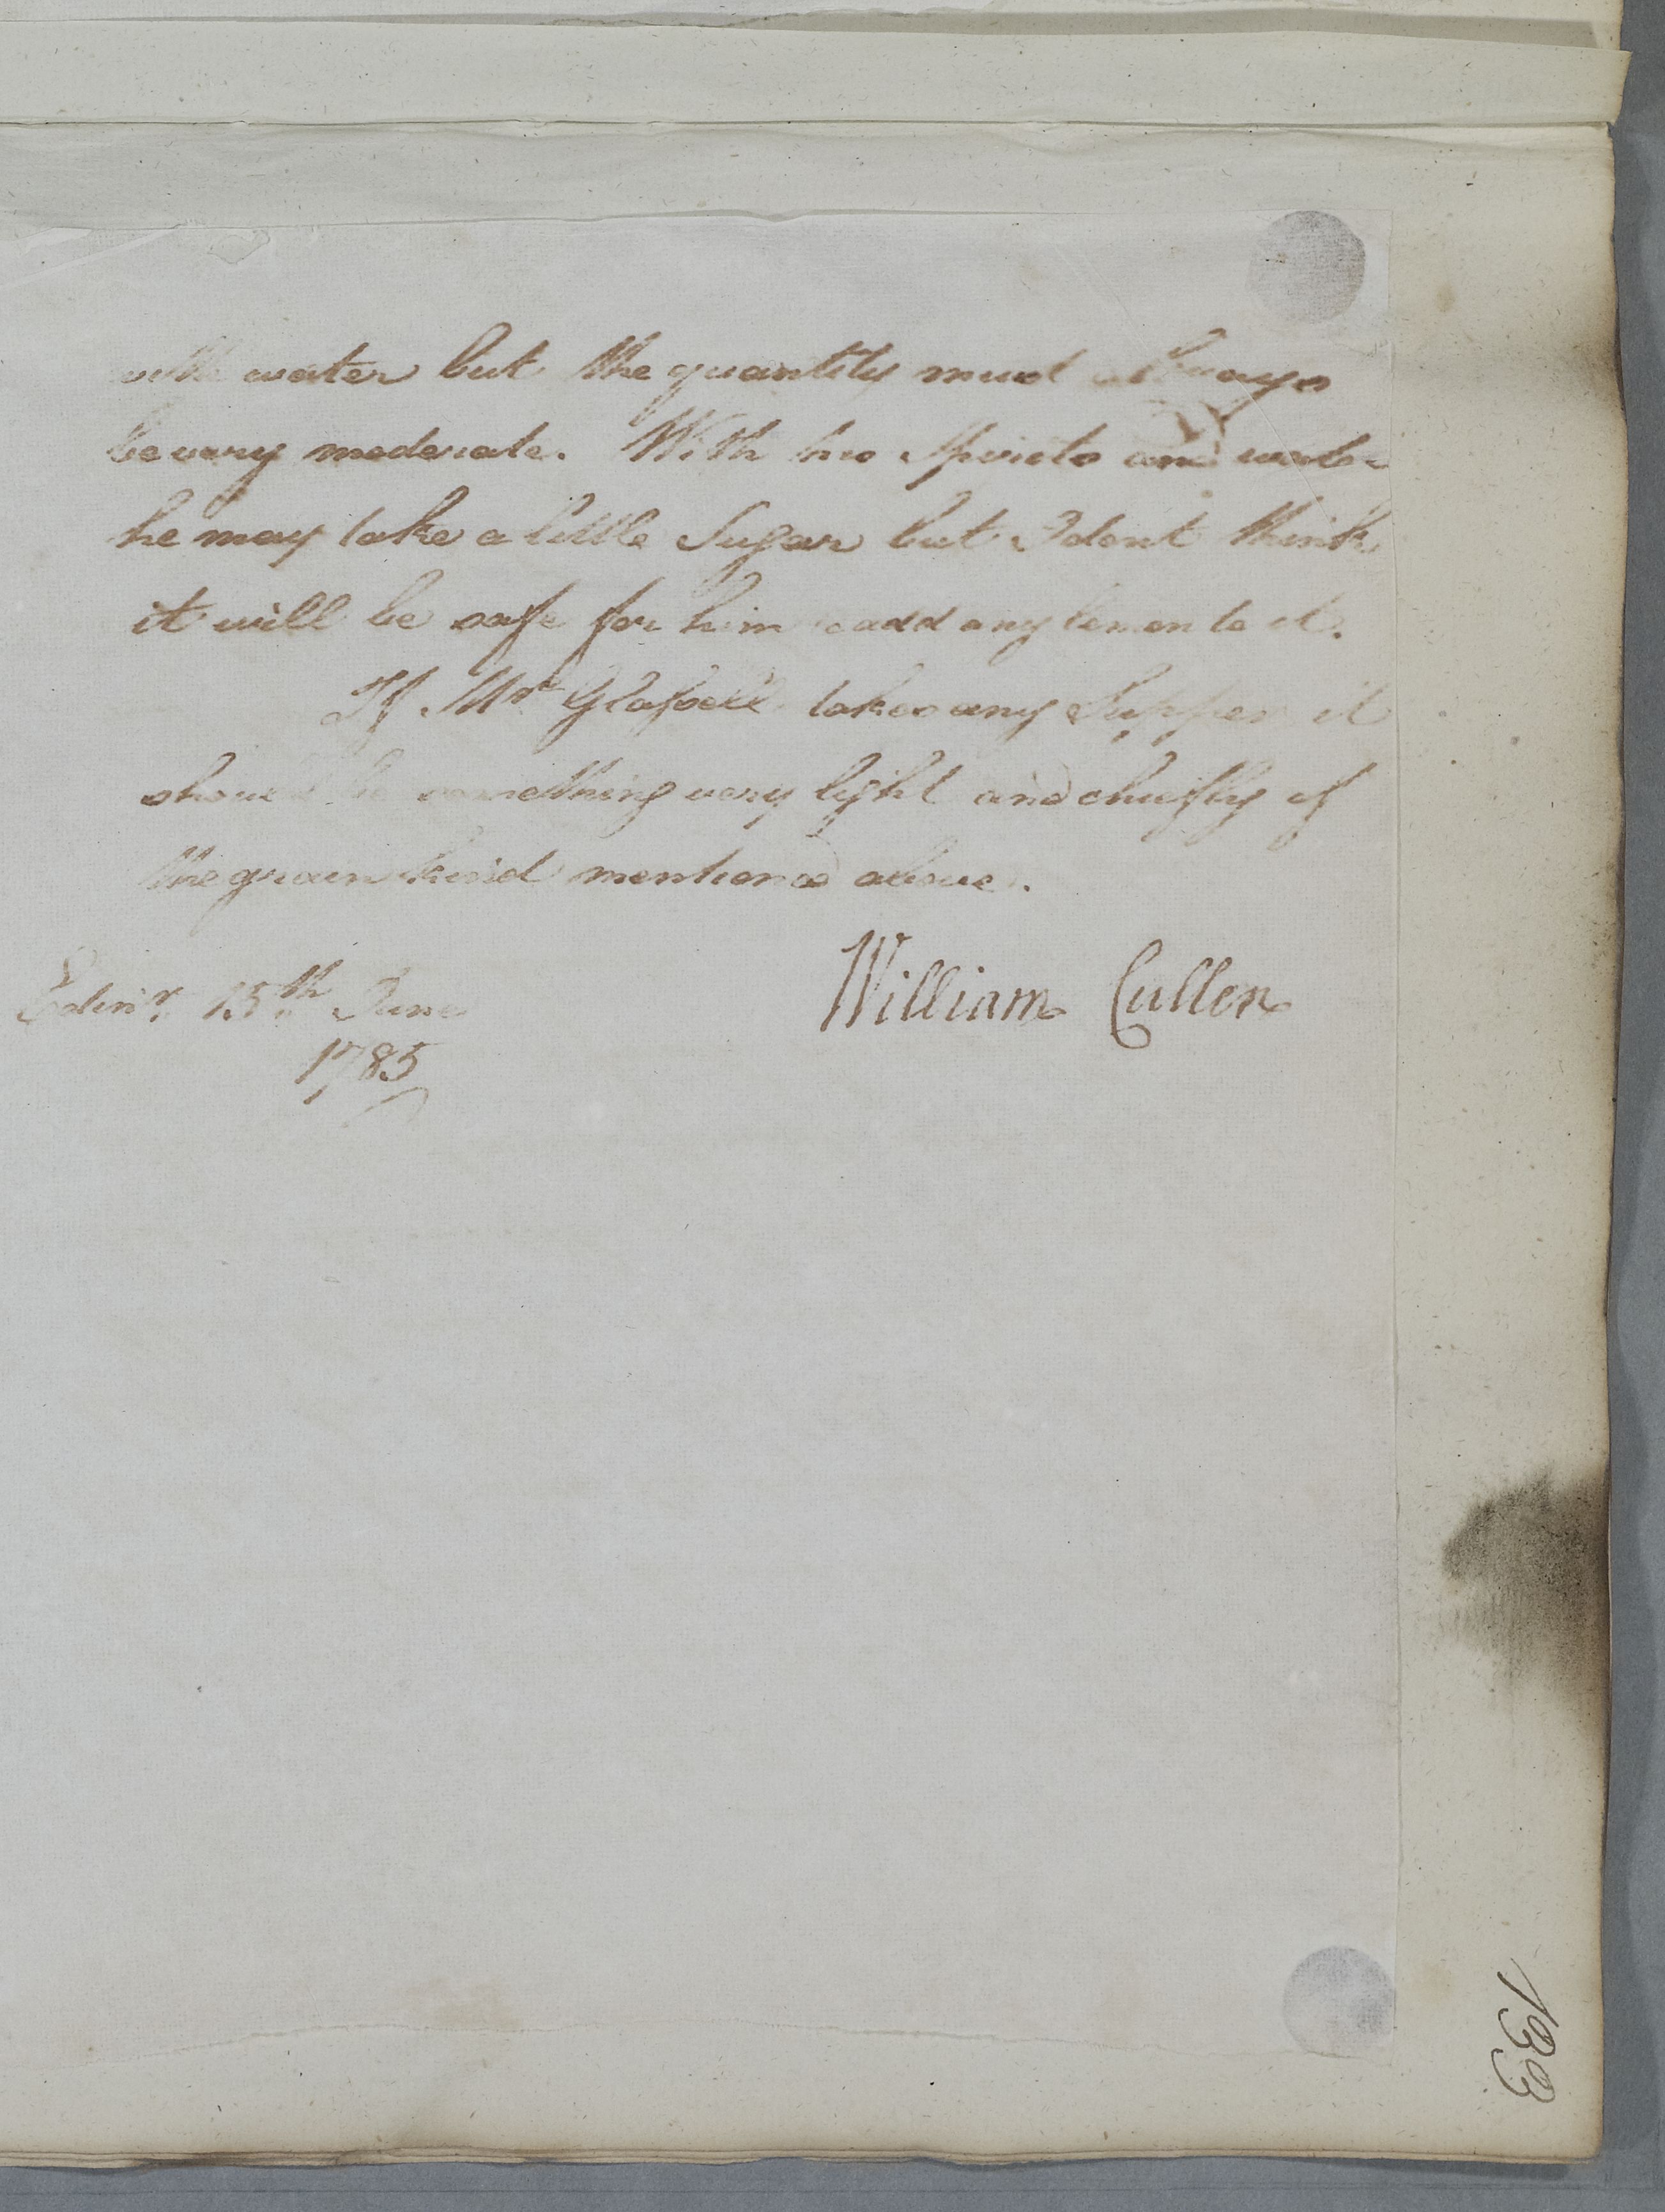 with water but the quantity must always
be very moderate. With his Spirits and water
he may take a little Sugar but I dont think
it will be safe for him to add any lemon to it.
If Mr takes any Supper it
should be something very light and chiefly of
the grain kind mentioned above.
William Cullen
Edinr. 15th June
1785
133